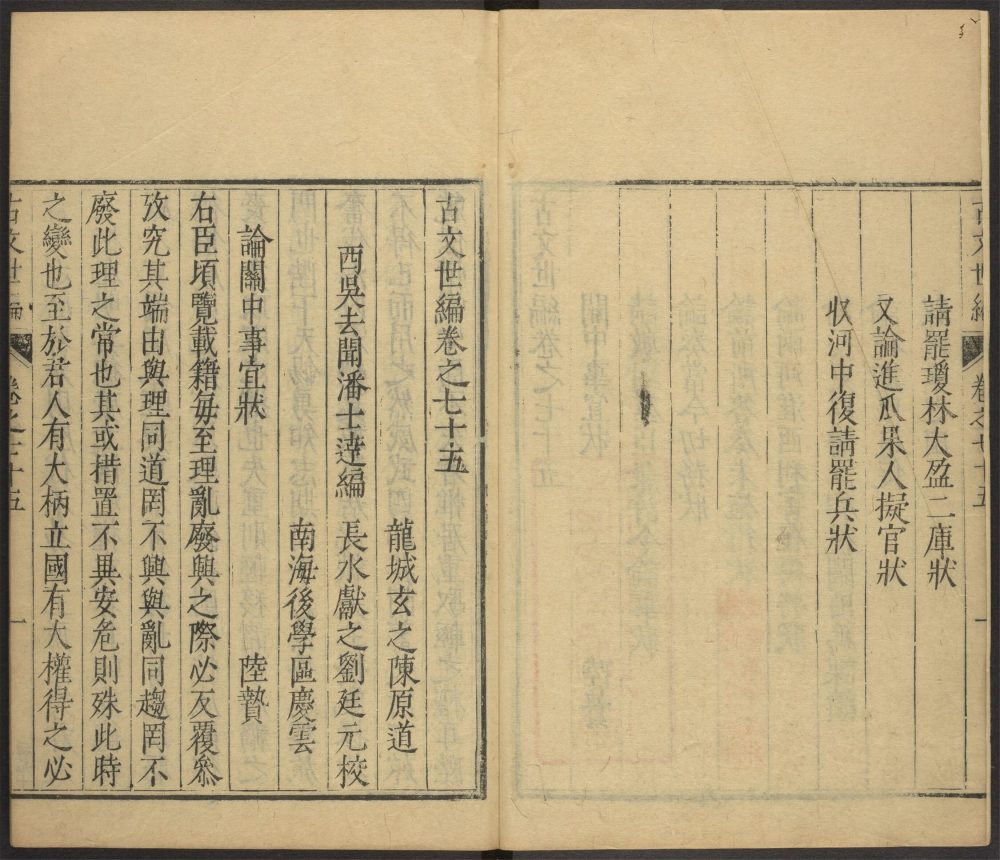 古文世編 卷之七十五 一
請罷瓊林大盈二庫狀
又論進瓜果人擬官狀
收河中復請罷兵狀
古文世編卷之七十五
龍城玄之陳原道
西吳去聞潘士達編 長水獻之劉廷元校
南海後學區慶雲
論關中事宜狀 陸贄
右臣頃覽載籍每至理亂廢興之際必反覆叅
攷究其端由與理同道罔不興與亂同趨罔不
廢此理之常也其或措置不異安危則殊此時
之變也至於君人有大柄立國有大權得之必
古文世編 卷之七十五 一